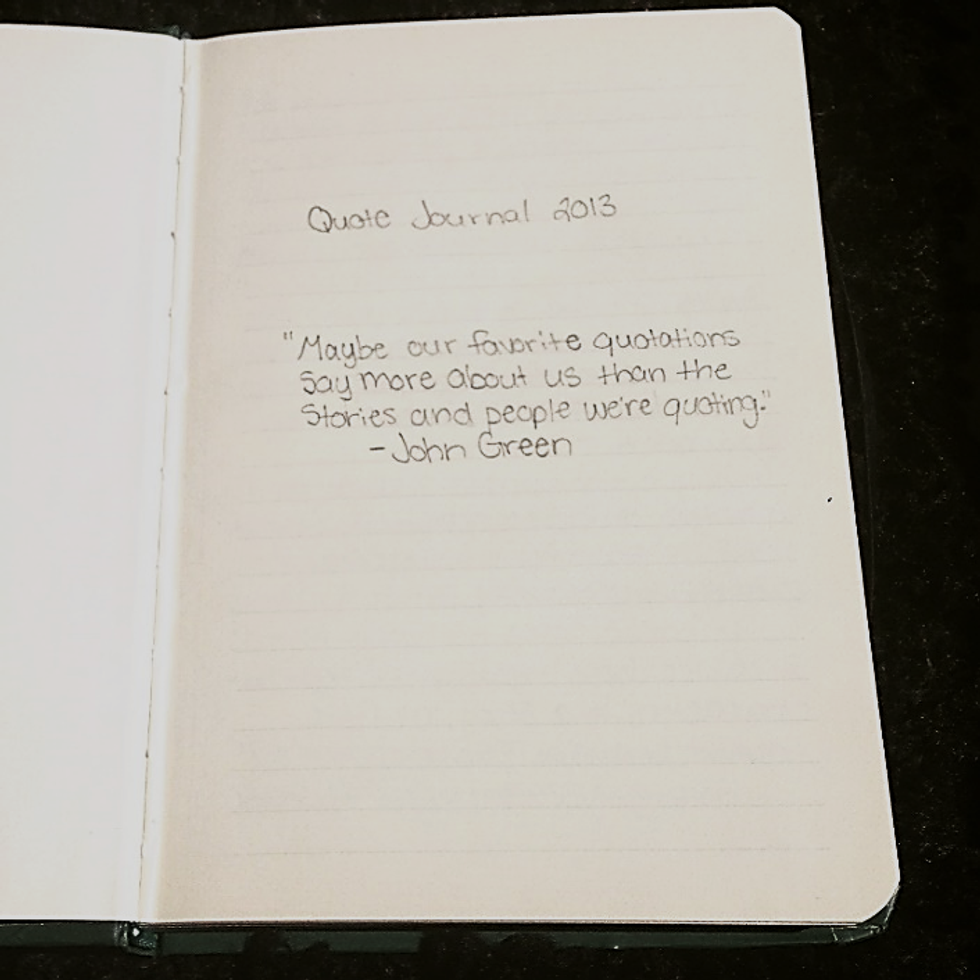 Quote Journal 2013
"Maybe our favorite quotations
say more about us than the
stories and people we're quoting."
-John Green